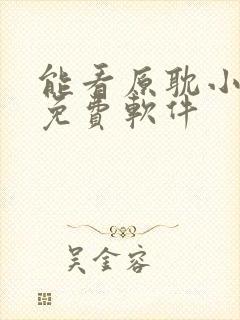 能看原耽小
免費軟件
吴金容